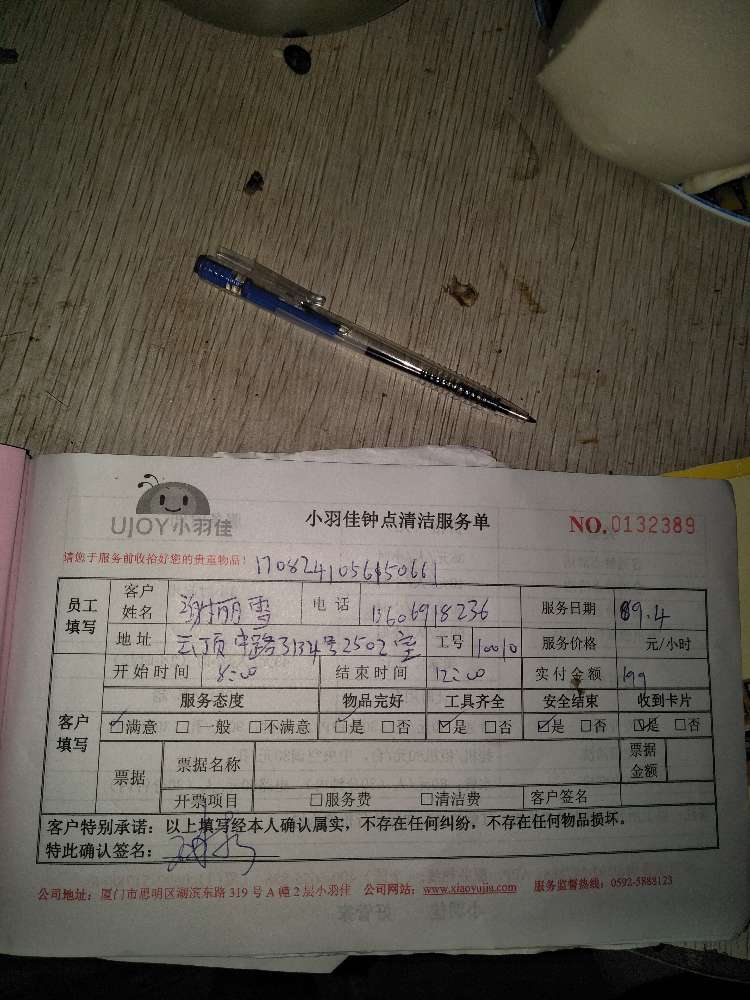 UJOY小羽佳 小羽佳钟点清洁服务单 NO.0132389
请您于服务前收拾好您的贵重物品！ 170824105645066
员工填写 客户姓名 谢丽雪 电话 13606918236 服务日期 9.4
地址 云顶中路3134号2502室 工号 10010 服务价格 元/小时
客户填写 开始时间 8:00 结束时间 12:00 实付金额 199
服务态度 物品完好 工具齐全 安全结束 收到卡片
☑满意 □一般 □不满意 ☑是 □否 ☑是 □否 ☑是 □否 ☑是 □否
票据 票据名称 票据金额
开票项目 □服务费 □清洁费 客户签名
客户特别承诺：以上填写经本人确认属实，不存在任何纠纷，不存在任何物品损坏。
特此确认签名：
公司地址：厦门市思明区湖滨东路 319 号 A 幢 2 层小羽佳 公司网站：www.xiaoyujia.com 服务监督热线：0592-5888123